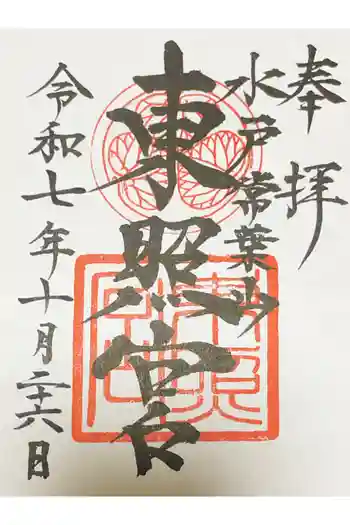 奉拝
水戸常葉山
東照宮
令和七年十月二十六日
東照宮印